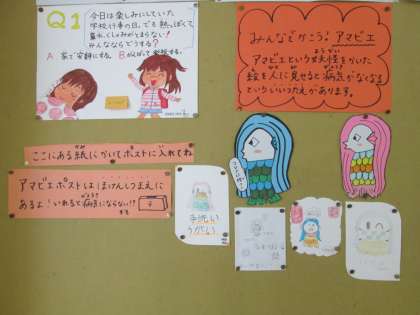 Q1
今日は楽しみにしていた
学校行事の日。でも熱っぽくて
鼻水、くしゃみがとまらない!
みんなならどうする?
A 家で安静にする。 Bがんばって登校する。
みんなでかこう!アマビエ
アマビエという妖怪をかいた
絵を人に見せると病気がなくなる
といういいつたえがあります。
ここにある紙にかいてポストに入れてね
アマビエポストは ほけんしつまえに
あるよ!いれると病気にならない!?
手洗い
うがい